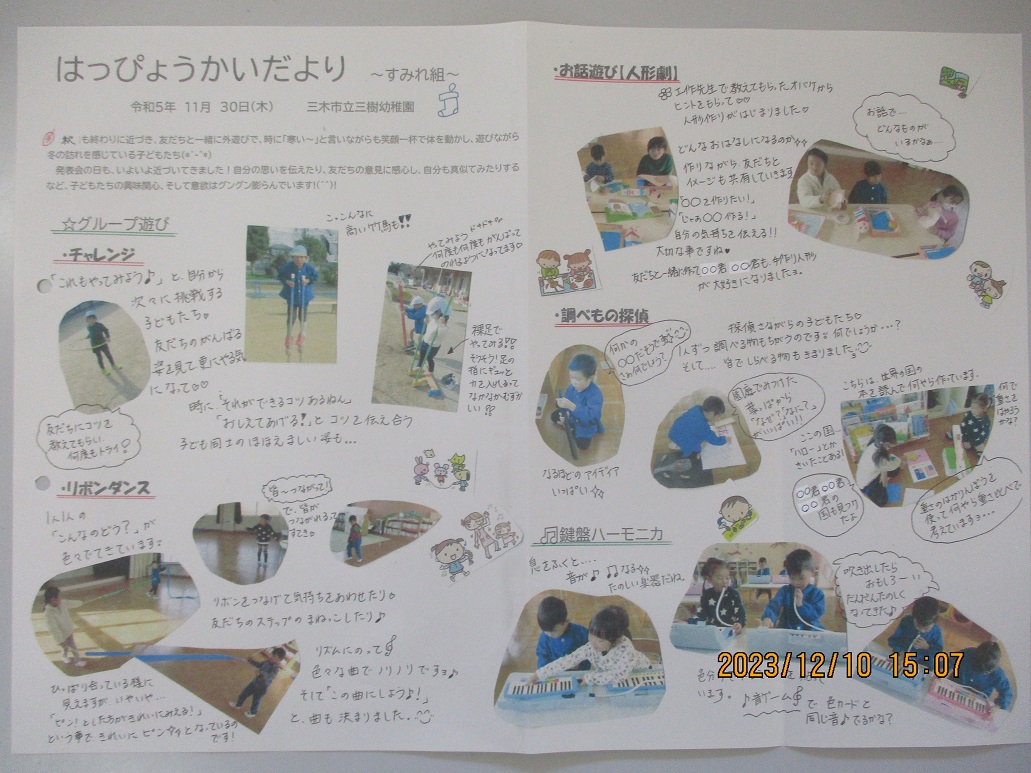 はっぴょうかいだより ～すみれ組～
令和5年 11月 30日(木) 三木市立三樹幼稚園
秋も終わりに近づき、友だちと一緒に外遊びで、時に「寒い～」と言いながらも笑顔一杯で体を動かし、遊びながら
冬の訪れを感じている子どもたち(*^-^*)
発表会の日も、いよいよ近づいてきました！自分の思いを伝えたり、友だちの意見に感心し、自分も真似てみたりする
など、子どもたちの興味関心、そして意欲はグングン膨らんでいます!(^^)!
☆グループ遊び
・チャレンジ
「これもやってみよう♪」と、自分から
次々に挑戦する
子どもたち。
友だちのがんばる
姿を見て更にやる気
になって♡
こ、こんなに
高い竹馬も!!
やってみよう ドキドキ
何度も何度もがんばって
のれるようになってます
裸足で
やってみる!!
そうそう！足の
指にギューッと
力を入れるって
なかなかむずかしい!!
友だちにコツを
教えてもらい
何度もトライ！
時に、「それができるコツあるねん
「おしえてあげる！」とコツを伝え合う
子ども同士のほほえましい姿も…
・リボンダンス
1人1人の
「こんなのどう？」が
色々でてきています
皆～つながって！
で、皆が
つながれるって
すてき。
リボンをつなげて気持ちをあわせたり。
友だちのステップのまねっこしたり♪
リズムにのって
色々な曲でノリノリですよ♪
そして「この曲にしようよ！」
と、曲も決まりました。
ひっぱり合っている様に
見えますが、いやいや…
「ピン！としたらがきれいにみえる！」
という事で きれいに ピンッとなっているの
です！
・お話遊び【人形劇】
工作先生で教えてもらったオバケから
ヒントをもらって♡♡
人形作りがはじまりました♡
どんなおはなしになるのか
作りながら、友だちと
イメージも共有していきます
「〇〇を作りたい！」
「じゃあ〇〇作る！」
自分の気持ちを伝える!!
大切な事ですね♥
お話で…
どんなものが
いるかなぁ…
友だちと一緒に作って〇〇君 〇〇君も手作り人形
が大好きになりましたョ。
・調べもの探偵
何かの
さぁ何でしょう？
探偵さながらの子どもたち♡
1人ずつ調べる物もちがうのです。何でしょうか…？
そして… 皆でしらべる物もきまりました。
なるほどの アイディア
いっぱい☆☆
園庭でみつけた
葉っぱから
「なぜ？」「なに？」
がいっぱい!!
こちらは、世界の国の
本を読んで何やら作っています。
ここの国
「ハロー」とか
きいたことある！
〇〇君〇〇君も
〇〇君の
国も見つけ
たよ
何で
重さを
はかろう
かな？
重さのはかりんぼうを
使って何やら重さ比べで
考えていますョ…
♫鍵盤ハーモニカ
息をふくと….
音が♪♫なる
たのしい楽器だね。
吹き出したら
おもしろーい
だんだんたのしく
なってきた♪
います。
♪音ゲーム で 色カードと
同じ音♪でるかな？
2023/12/10 15:07